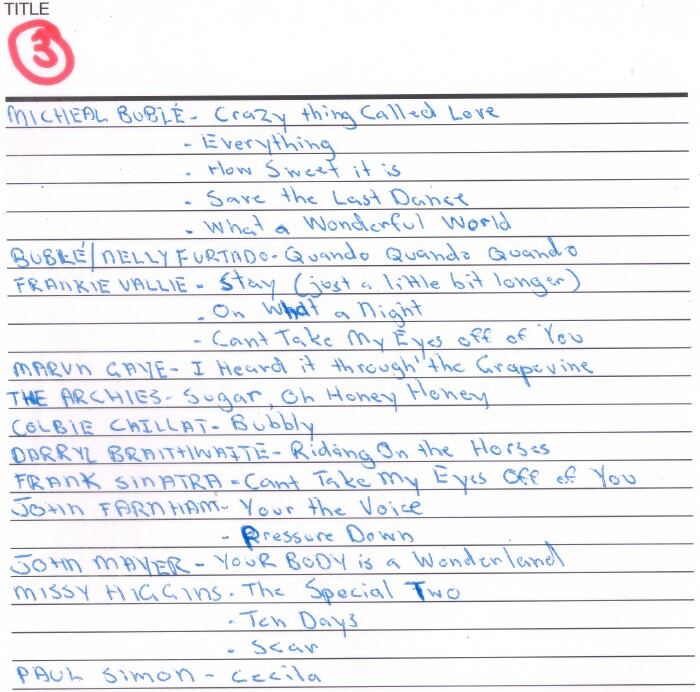 TITLE
3
MICHEAL BUBLÉ - Crazy thing Called Love
- Everything
- How Sweet it is
- Save the Last Dance
- What a Wonderful World
BUBLÉ/NELLY FURTADO - Quando Quando Quando
FRANKIE VALLIE - Stay (just a little bit longer)
- On What a Night
- Cant Take My Eyes off of You
MARVN GAYE - I Heard it through the Grapevine
THE ARCHIES - Sugar, Oh Honey Honey
COLBIE CAILLAT - Bubbly
DARRYL BRAITHWAITE - Riding On the Horses
FRANK SINATRA - Cant Take My Eyes Off of You
JOHN FARNHAM - Your the Voice
- Pressure Down
JOHN MAYER - YOUR BODY is a Wonderland
MISSY HIGGINS - The Special Two
- Ten Days
- Scar
PAUL Simon - Cecila